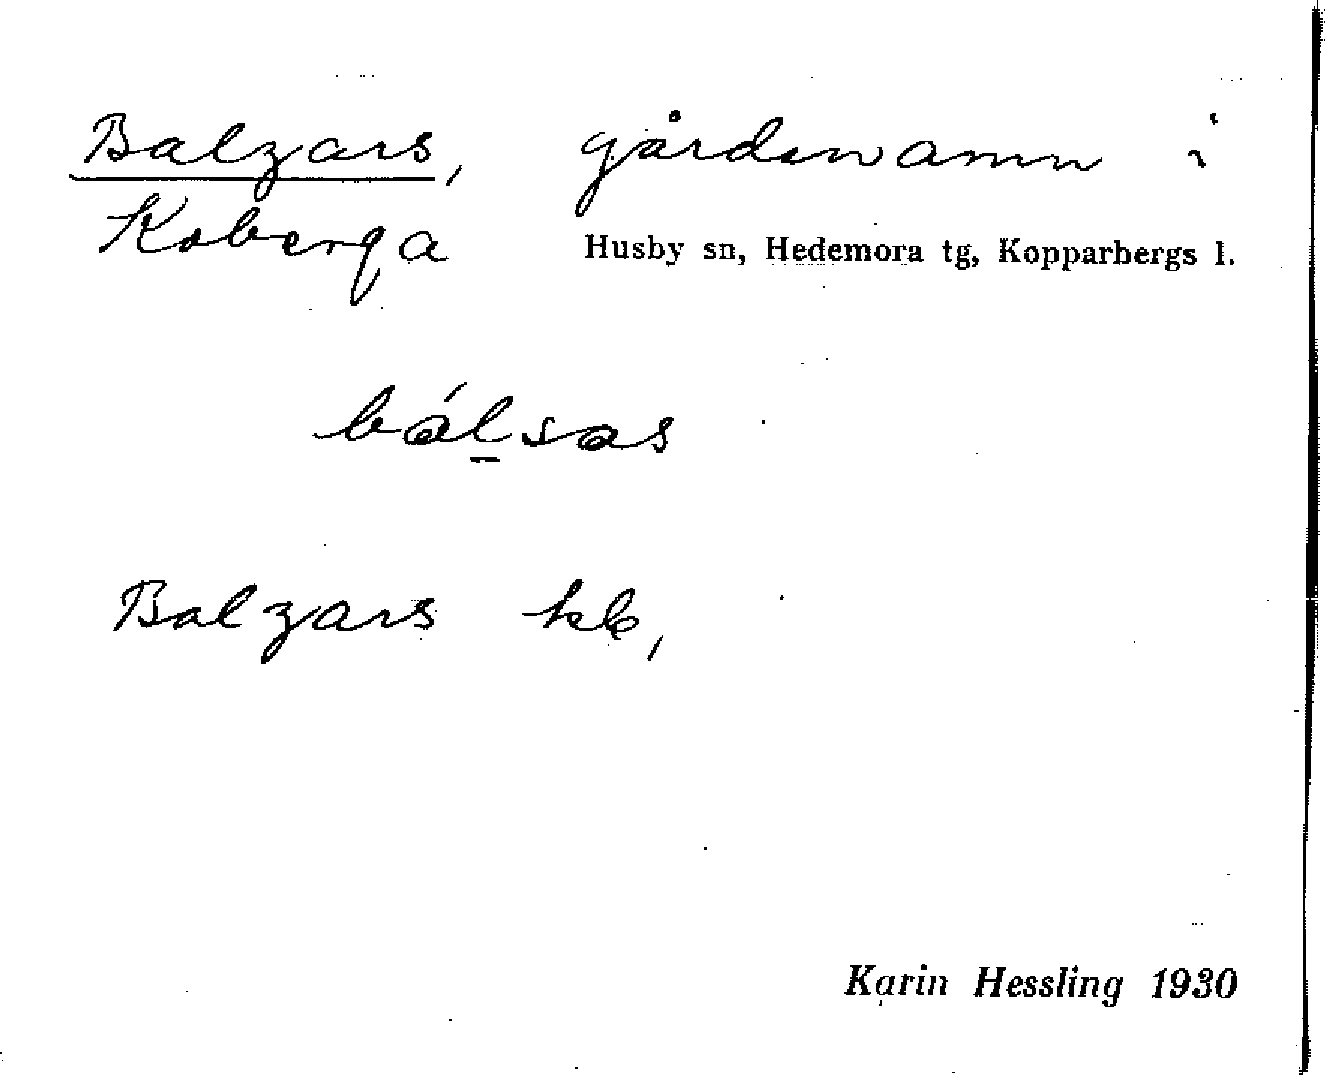 Balzars, gårdsnamn i
Koberga Husby sn, Hedemora tg, Kopparbergs l.
bálsas
Balzars kb,
Karin Hessling 1930